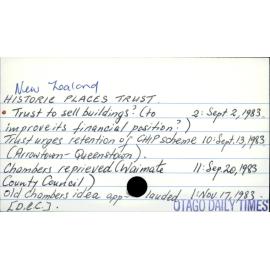 New Zealand
HISTORIC PLACES TRUST.
• Trust to sell buildings? (to 2: Sept 2, 1983
improve its financial position?)
Trust urges retention of CHIP scheme 10: Sept. 13, 1983
(Arrowtown - Queenstown).
Chambers reprieved (Waimate 11: Sep. 20, 1983
County Council)
Old chambers idea app- lauded 1: Nov. 17, 1983.
[O.E.C.].
OTAGO DAILY TIMES